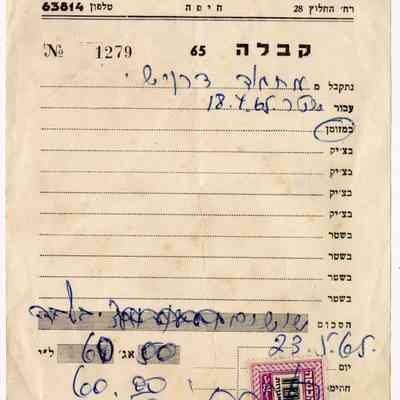 רח׳ החלוץ 28 חיפה טלפון 63814
קבלה 65 1279 №
נתקבל מ מחמוד דרויש
עבור שטר 18.4.65
במזומן
בצ׳יק
בצ׳יק
בצ׳יק
בצ׳יק
בשטר
בשטר
בשטר
בשטר
הסכום
60 אג׳ 00 ל״י
23.5.65.
יום
60.00
חתימה